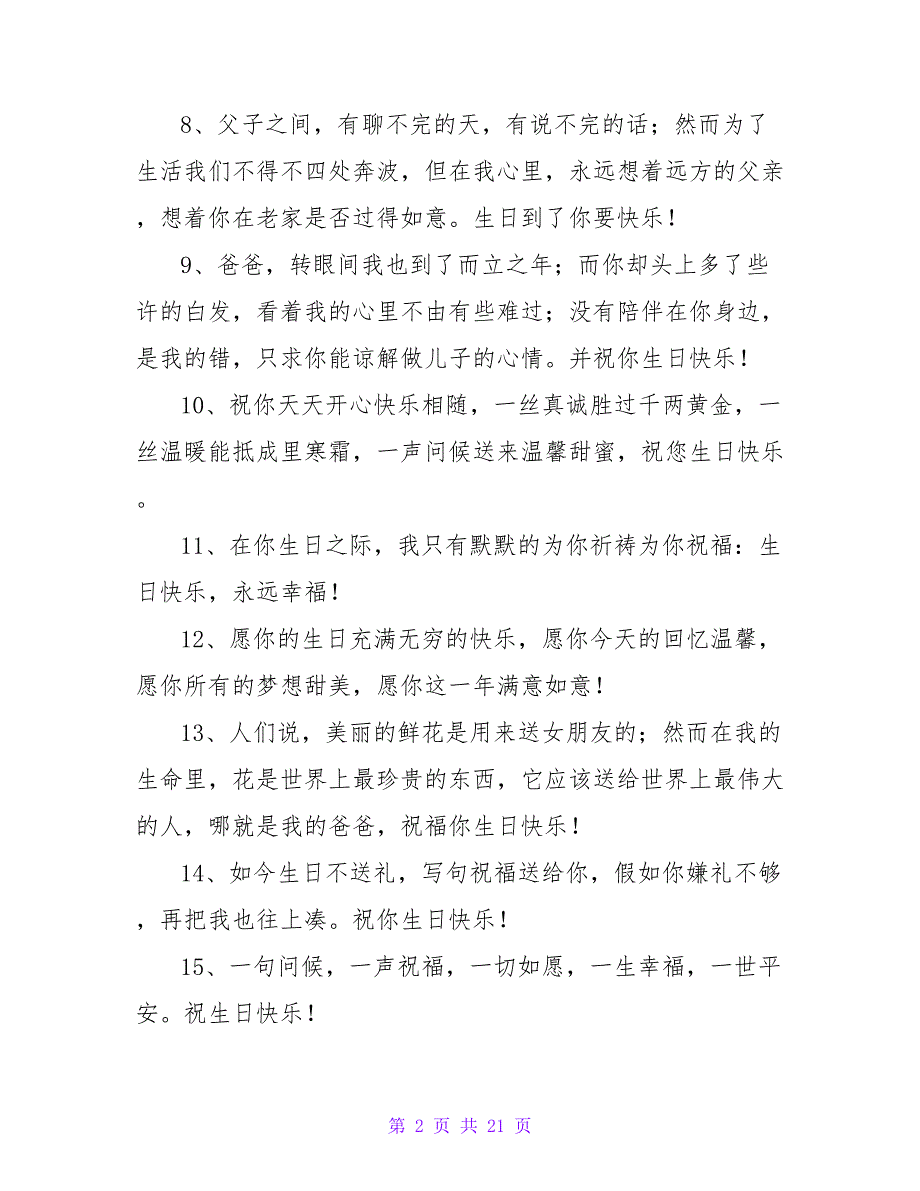 8、父子之间，有聊不完的天，有说不完的话；然而为了
生活我们不得不四处奔波，但在我心里，永远想着远方的父亲
，想着你在老家是否过得如意。生日到了你要快乐！
9、爸爸，转眼间我也到了而立之年；而你却头上多了些
许的白发，看着我的心里不由有些难过；没有陪伴在你身边，
是我的错，只求你能谅解做儿子的心情。并祝你生日快乐！
10、祝你天天开心快乐相随，一丝真诚胜过千两黄金，一
丝温暖能抵成里寒霜，一声问候送来温馨甜蜜，祝您生日快乐
。
11、在你生日之际，我只有默默的为你祈祷为你祝福：生
日快乐，永远幸福！
12、愿你的生日充满无穷的快乐，愿你今天的回忆温馨，
愿你所有的梦想甜美，愿你这一年满意如意！
13、人们说，美丽的鲜花是用来送女朋友的；然而在我的
生命里，花是世界上最珍贵的东西，它应该送给世界上最伟大
的人，哪就是我的爸爸，祝福你生日快乐！
14、如今生日不送礼，写句祝福送给你，假如你嫌礼不够
，再把我也往上凑。祝你生日快乐！
15、一句问候，一声祝福，一切如愿，一生幸福，一世平
安。祝生日快乐！
第 2 页 共 21 页